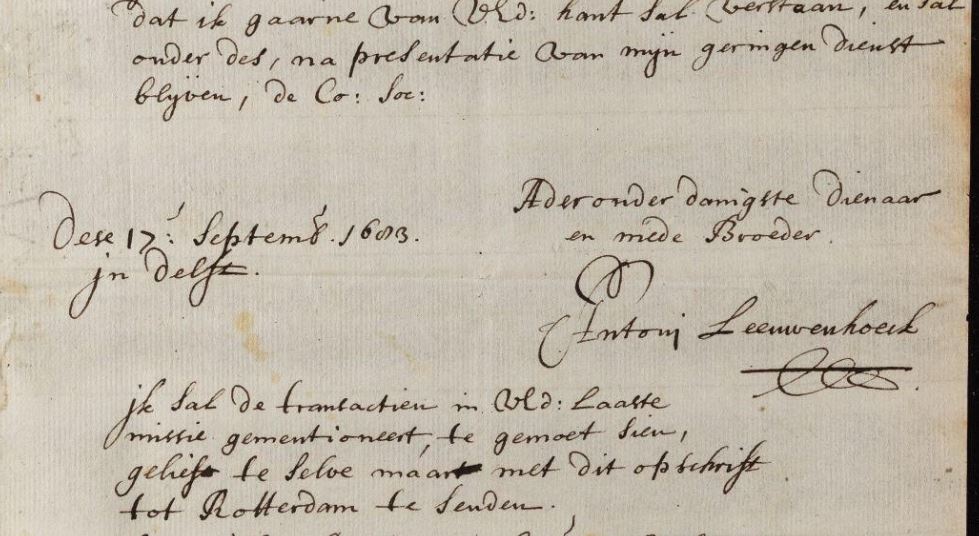 dat ik gaarne van UEd: hant sal verstaan, en sal
onder des, na presentatie van mijn geringen dienst
blijven, de Co: Soc:
Ader onder danigste Dienaar
en mede Broeder.
Dese 17: Septemb. 1683.
jn Delft.
Antonj Leeuwenhoeck
jk sal de transactien in UEd: Laaste
missie gementioneert, te gemoet sien,
gelieft te selve maar met dit opschrift
tot Rotterdam te senden.